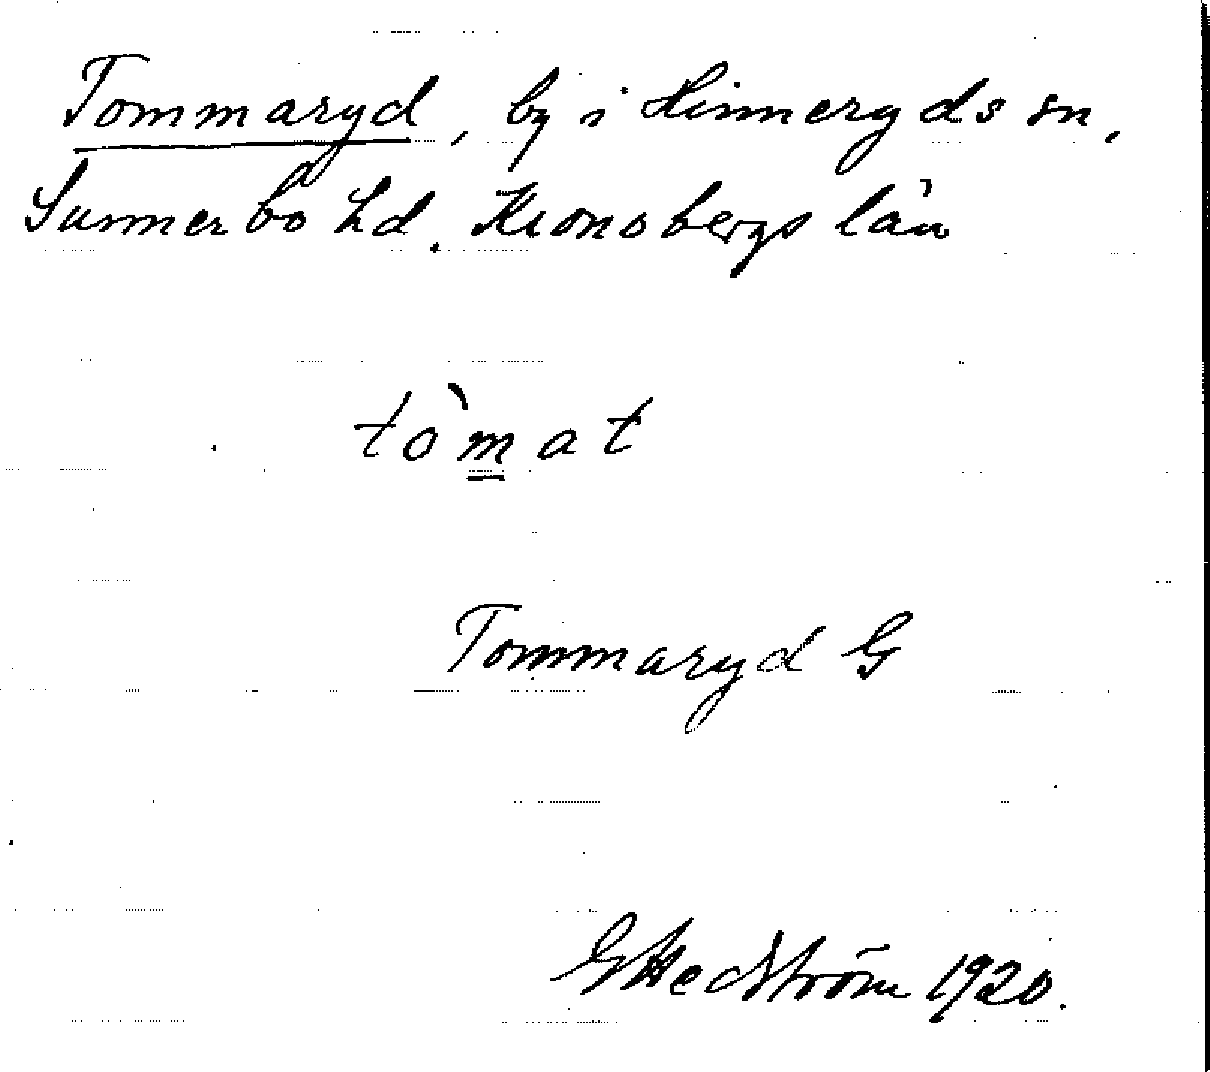 Tommaryd, by i Hinneryds sn,
Sunnerbo hd. Kronobergs län
tòmat
Tommaryd G
G Hedström 1920.